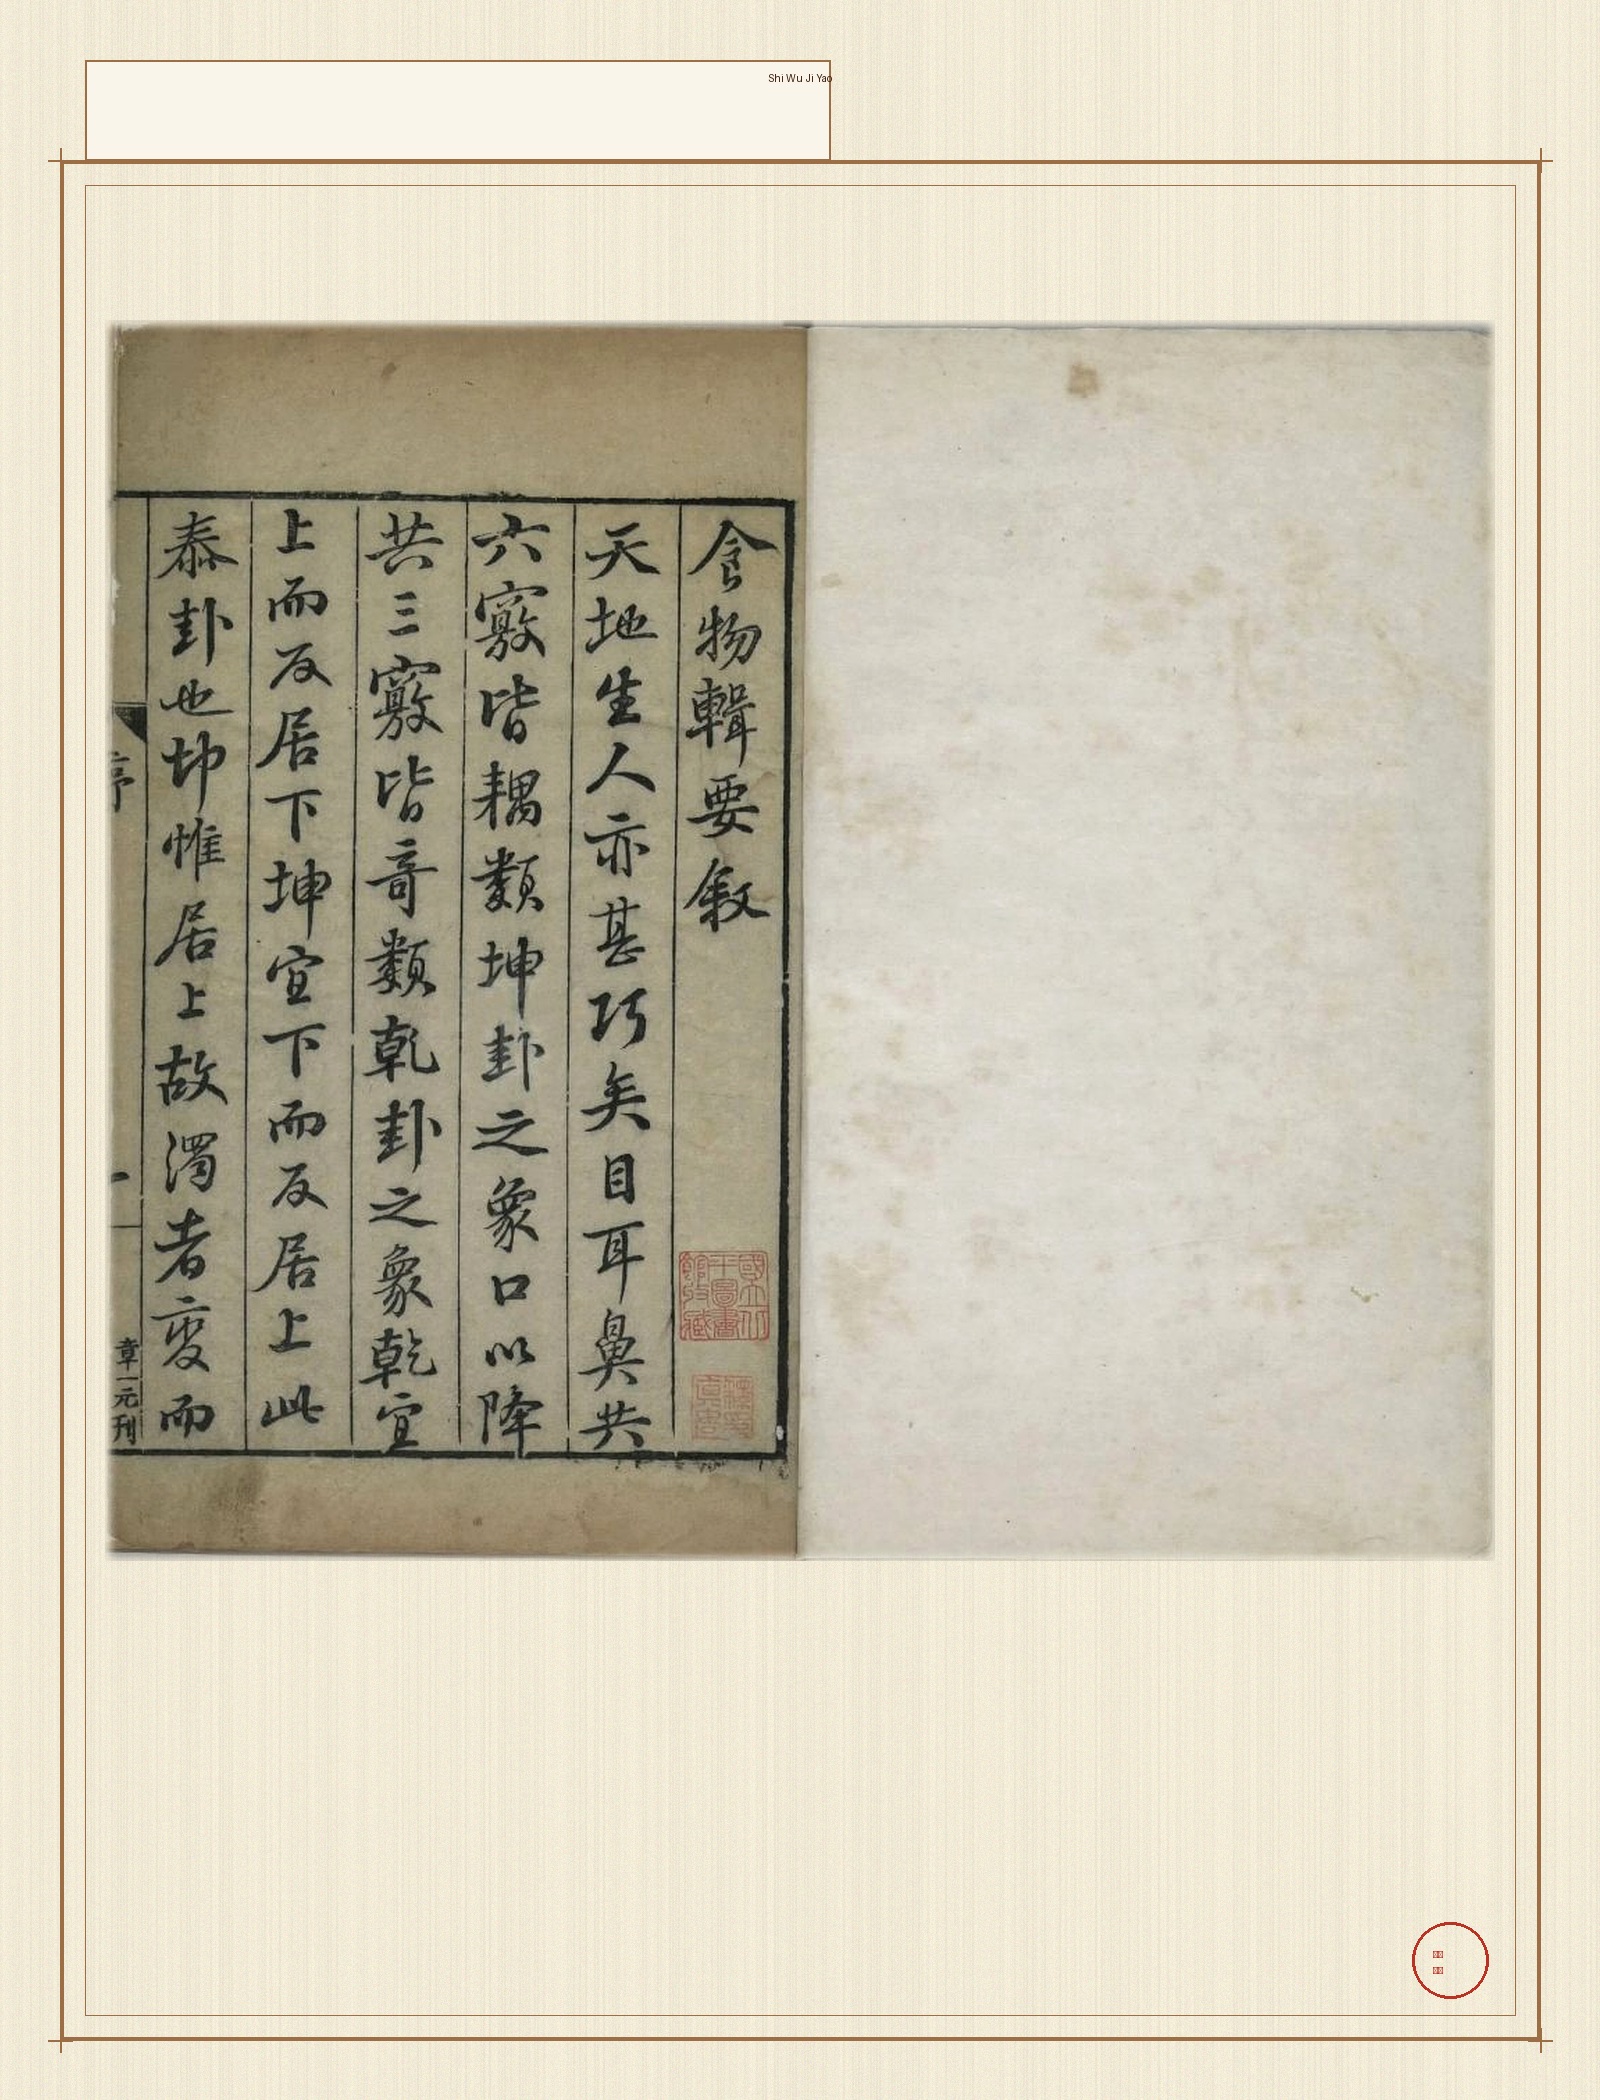 Shi Wu Ji Yao
食物輯要敘
天地生人亦甚巧矣目耳鼻共
六竅皆耦類坤卦之象口以降
共三竅皆竒類乾卦之象乾宜
上而反居下坤宜下而反居上此
泰卦也卽惟居上故濁者变而
序
一
章一元刊
國立北
平圖書
館收藏